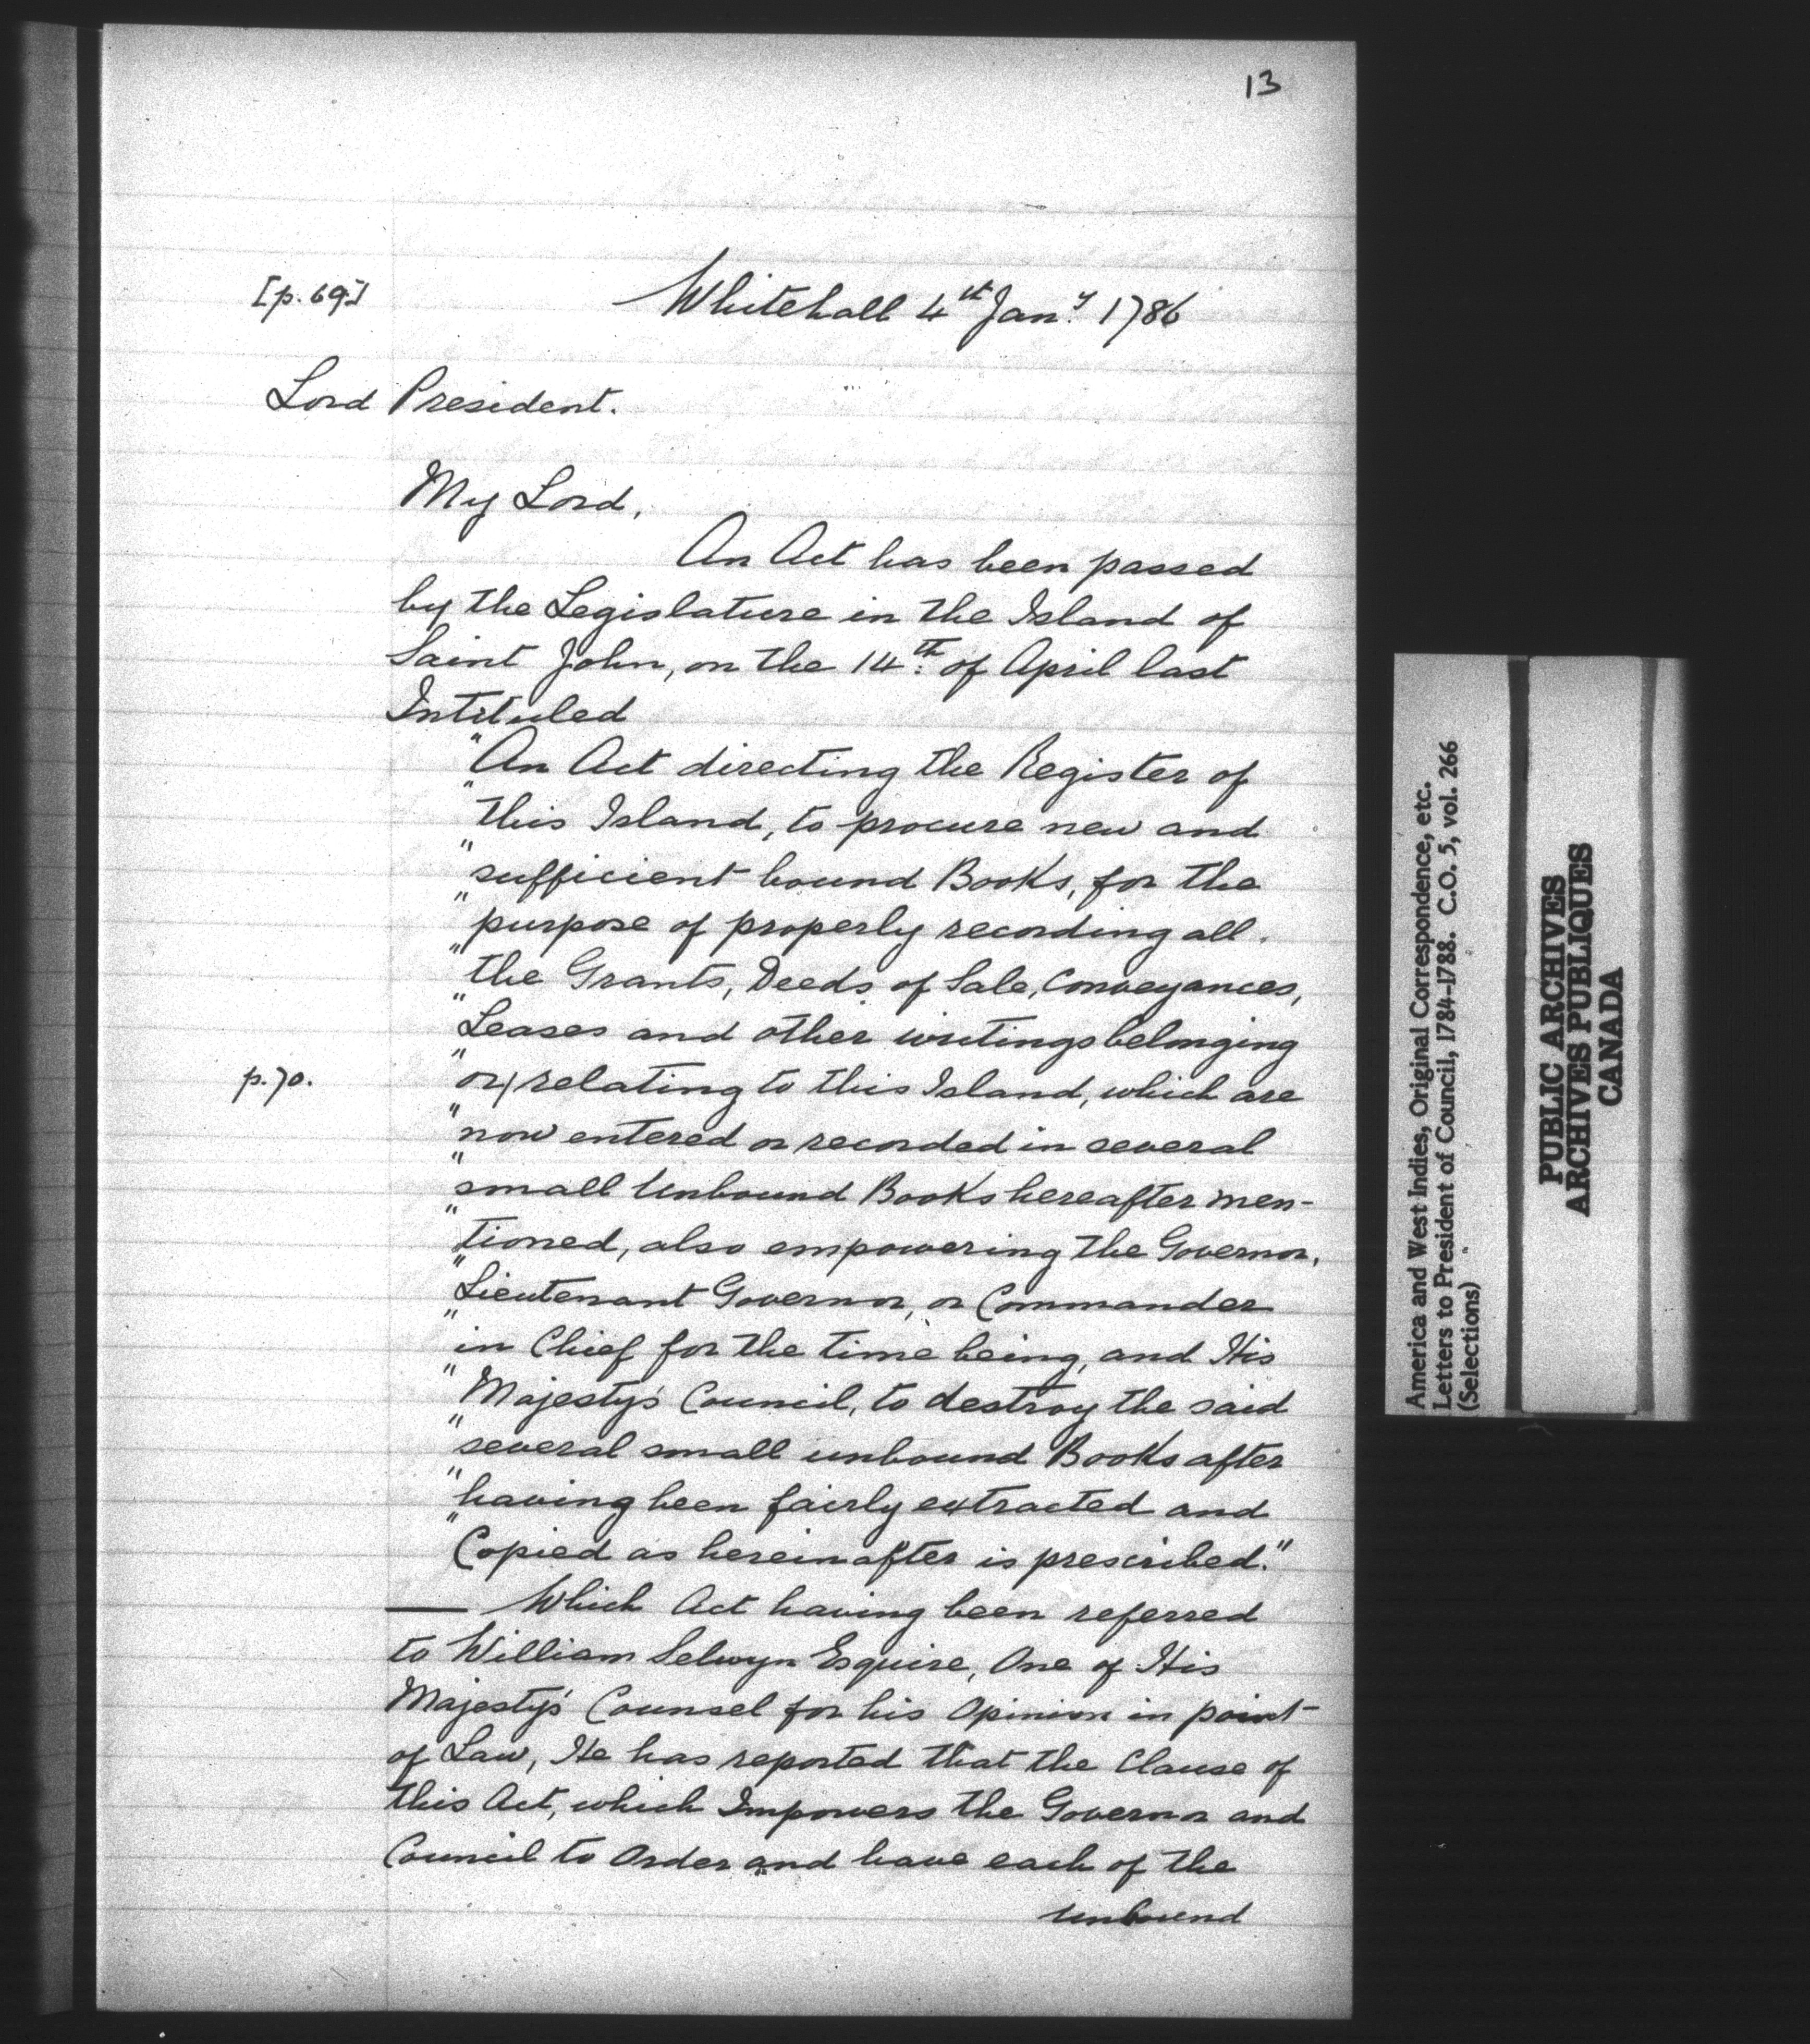 13
[p. 69]
Whitehall 4th Jany. 1786
Lord President.
My Lord,
An Act has been passed
by the Legislature in the Island of
Saint John, on the 14th. of April last
Intituled
"An Act directing the Register of
"this Island, to procure new and
"sufficient bound Books, for the
"purpose of properly recording all.
"the Grants, Deeds of Sale, Conveyances,
"Leases and other writings belonging
p. 70.
"or/ relating to this Island, which are
"now entered or recorded in several
"small Unbound Books hereafter men-
"tioned, also empowering the Governor,
"Lieutenant Governor, or Commander
"in Chief for the time being, and His
"Majesty's Council, to destroy the said
"several small unbound Books after
"having been fairly extracted and
"Copied as hereinafter is prescribed."
— Which Act having been referred
to William Selwyn Esquire, One of His
Majesty's Counsel for his Opinion in point
of Law, He has reported that the Clause of
this Act, which Impowers the Governor and
Council to Order and have each of the
unbound
America and West Indies, Original Correspondence, etc.
Letters to President of Council, 1784-1788. C.O. 5, vol. 266
(Selections)
PUBLIC ARCHIVES
ARCHIVES PUBLIQUES
CANADA